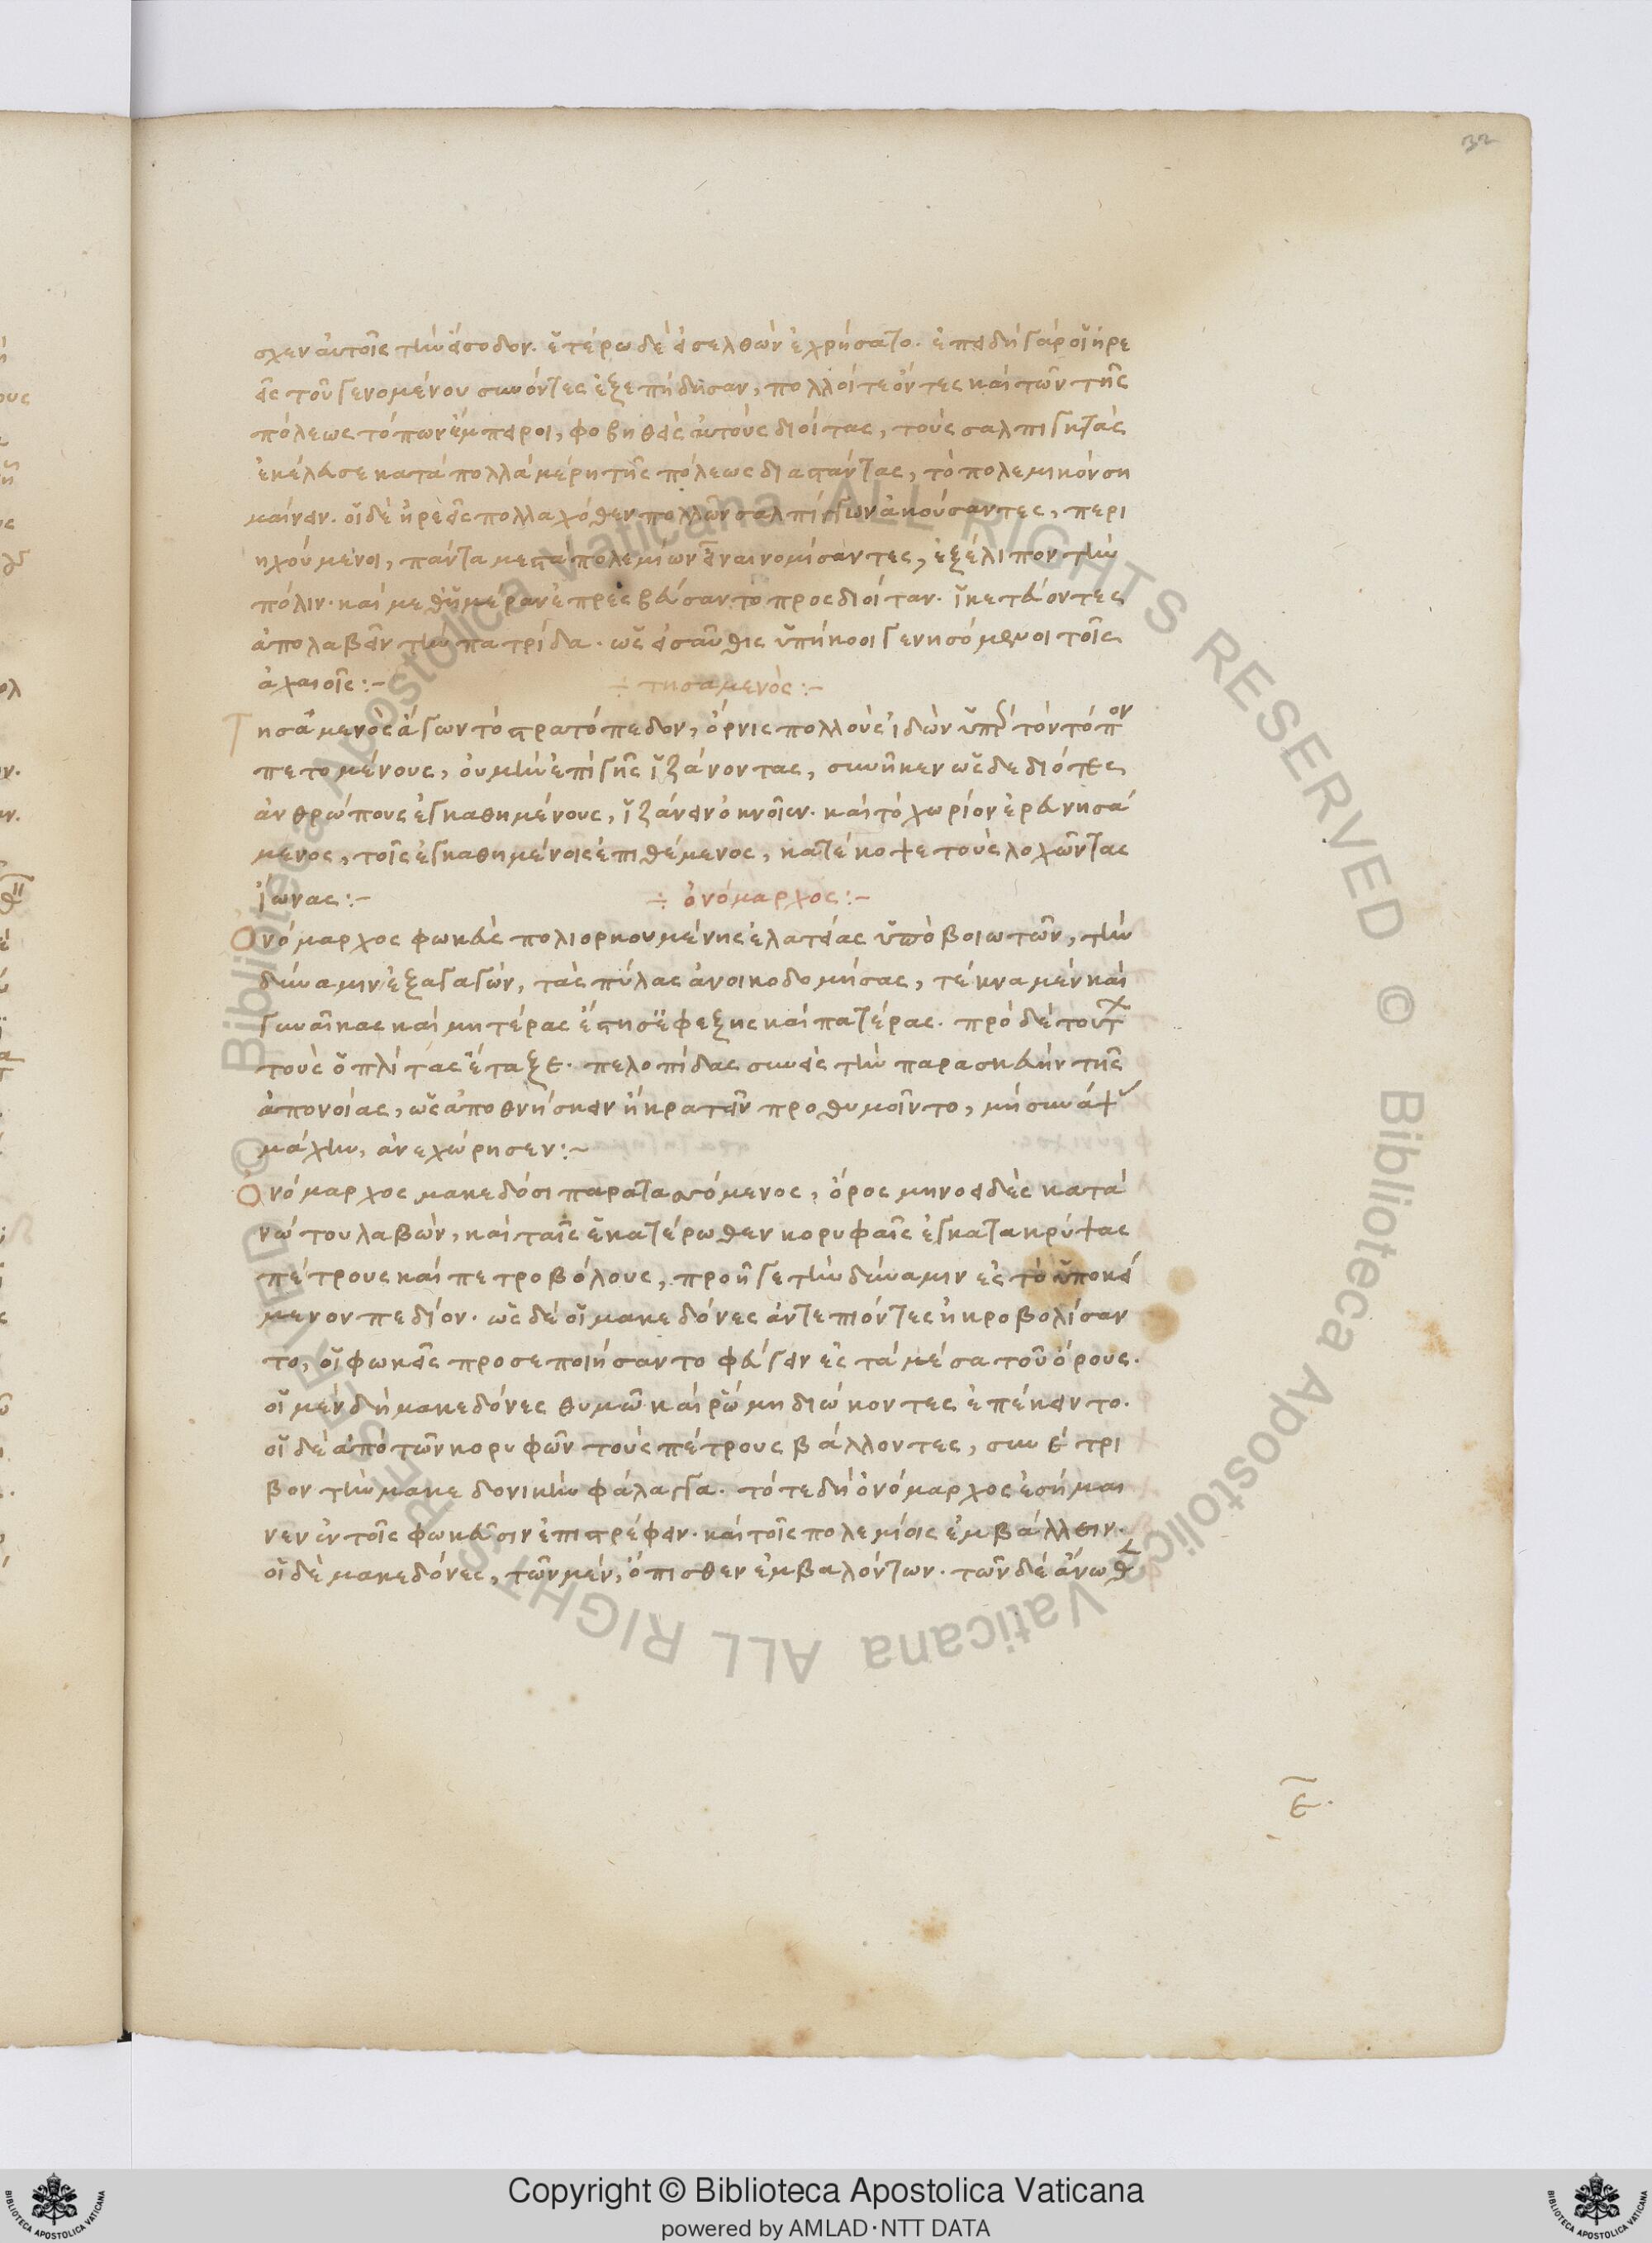 32
σχεν αὐτοῖς τὴν εἴσοδον. ἑτέρω δὲ εἰσελθὼν ἐχρήσατο. ἐπειδὴ γὰρ οἱ ἡρε
εῖς τοῦ γενομένου συνόντες ἐξεπήδησαν, πολλοί τε ὄντες καὶ τῶν τῆς
πόλεως τόπων ἔμπειροι, φοβηθεὶς αὐτοὺς διοίτας, τοὺς σαλπιγκτὰς
ἐκέλευσε κατὰ πολλὰ μέρη τῆς πόλεως διαστάντας, τὸ πολεμικὸν ση
μαίνειν. οἱ δὲ ἡρεεῖς πολλαχόθεν πολλῶν σαλπίγγων ἀκούσαντες, περι
ηχούμενοι, πάντα μεστὰ πολεμίων εἶναι νομίσαντες, ἐξέλιπον τὴν
πόλιν. καὶ μεθημέραν ἐπρεσβεύσαντο προς διοίταν. ἱκετεύοντες
ἀπολαβεῖν τὴν πατρίδα. ὡς εἰσαῦθις ὑπήκοοι γενησόμενοι τοῖς
ἀχαιοῖς :-
÷ τησαμενὸς :-
Τησάμενὸς ἄγων τὸ στρατόπεδον, ὄρνις πολλοὺς ἰδὼν ὑπὲρ τὸν τόπον
πετομένους, οὐ μὴν ἐπὶ γῆς ἱζάνοντας, συνῆκεν ὡς δεδιότες
ἀνθρώπους ἐγκαθημένους, ἱζάνειν ὀκνοῖεν. καὶ τὸ χωρίον ἐρευνησά
μενος, τοῖς ἐγκαθημένοις ἐπιθέμενος, κατέκοψε τοὺς λοχῶντας
ἴωνας :-
÷ ὀνόμαρχος :-
Ὀνόμαρχος φωκεὺς πολιορκουμένης ἐλατείας ὑπὸ βοιωτῶν, τὴν
δύναμιν ἐξαγαγών, τὰς πύλας ἀνοικοδομήσας, τέκνα μὲν καὶ
γυναῖκας καὶ μητέρας ἔστησεν ἐφεξης καὶ πατέρας. πρὸ δὲ τούτων
τοὺς ὁπλίτας ἔταξε. πελοπίδας συνεὶς τὴν παρασκευὴν τῆς
ἀπονοίας, ὡς ἀποθνήσκειν ἢ κρατεῖν προθυμοῖντο, μὴ συνάψας
μάχην, ἀνεχώρησεν :~
Ὀνόμαρχος μακεδόσι παραταττόμενος, ὄρος μηνοειδὲς κατὰ
νώτου λαβών, καὶ ταῖς ἑκατέρωθεν κορυφαῖς ἐγκατακρύψας
πέτρους καὶ πετροβόλους, προῆγε τὴν δύναμιν ἐς τὸ ὑποκεί
μενον πεδίον. ὡς δὲ οἱ μακεδόνες ἀντεπιόντες ἠκροβολίσαν
το, οἱ φωκεῖς προσεποιήσαντο φεύγειν ἐς τὰ μέσα τοῦ ὄρους.
οἱ μὲν δὴ μακεδόνες θυμῶ καὶ ῥώμη διώκοντες ἐπέκειντο.
οἱ δὲ ἀπὸ τῶν κορυφῶν τοὺς πέτρους βάλλοντες, συνέτρι
βον τὴν μακεδονικὴν φάλαγγα. τότε δὴ ὀνόμαρχος ἐσήμαι
νεν ἐν τοῖς φωκεῦσιν ἐπιστρέφειν. καὶ τοῖς πολεμίοις ἐμβάλλειν.
οἱ δὲ μακεδόνες, τῶν μέν, ὄπισθεν ἐμβαλόντων. τῶν δὲ ἄνωθεν
ε.
Biblioteca Apostolica Vaticana ALL RIGHTS RESERVED ©
Copyright © Biblioteca Apostolica Vaticana
powered by AMLAD·NTT DATA